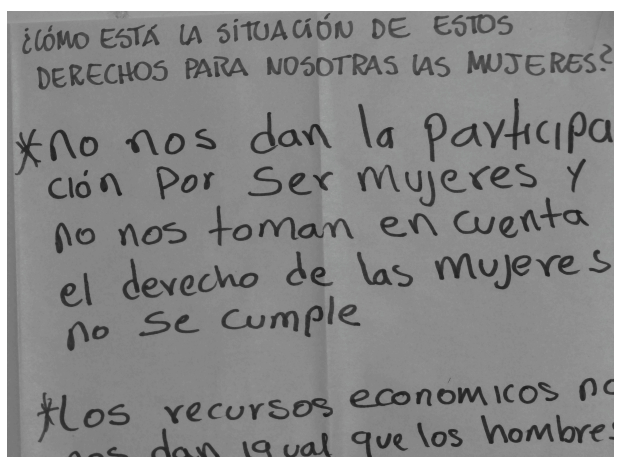 ¿CÓMO ESTÁ LA SITUACIÓN DE ESTOS
DERECHOS PARA NOSOTRAS LAS MUJERES?
*no nos dan la participa
ción Por Ser mujeres y
no nos toman en cuenta
el derecho de las mujeres
no se cumple
*Los recursos económicos no
nos dan igual que los hombres